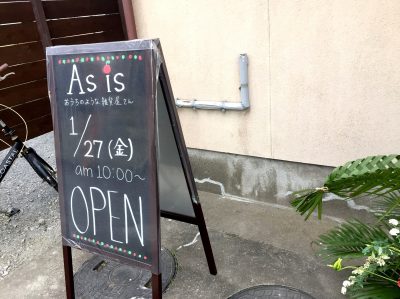 As is
おうちのような雑貨屋さん
1/27(金)
am 10:00~
OPEN